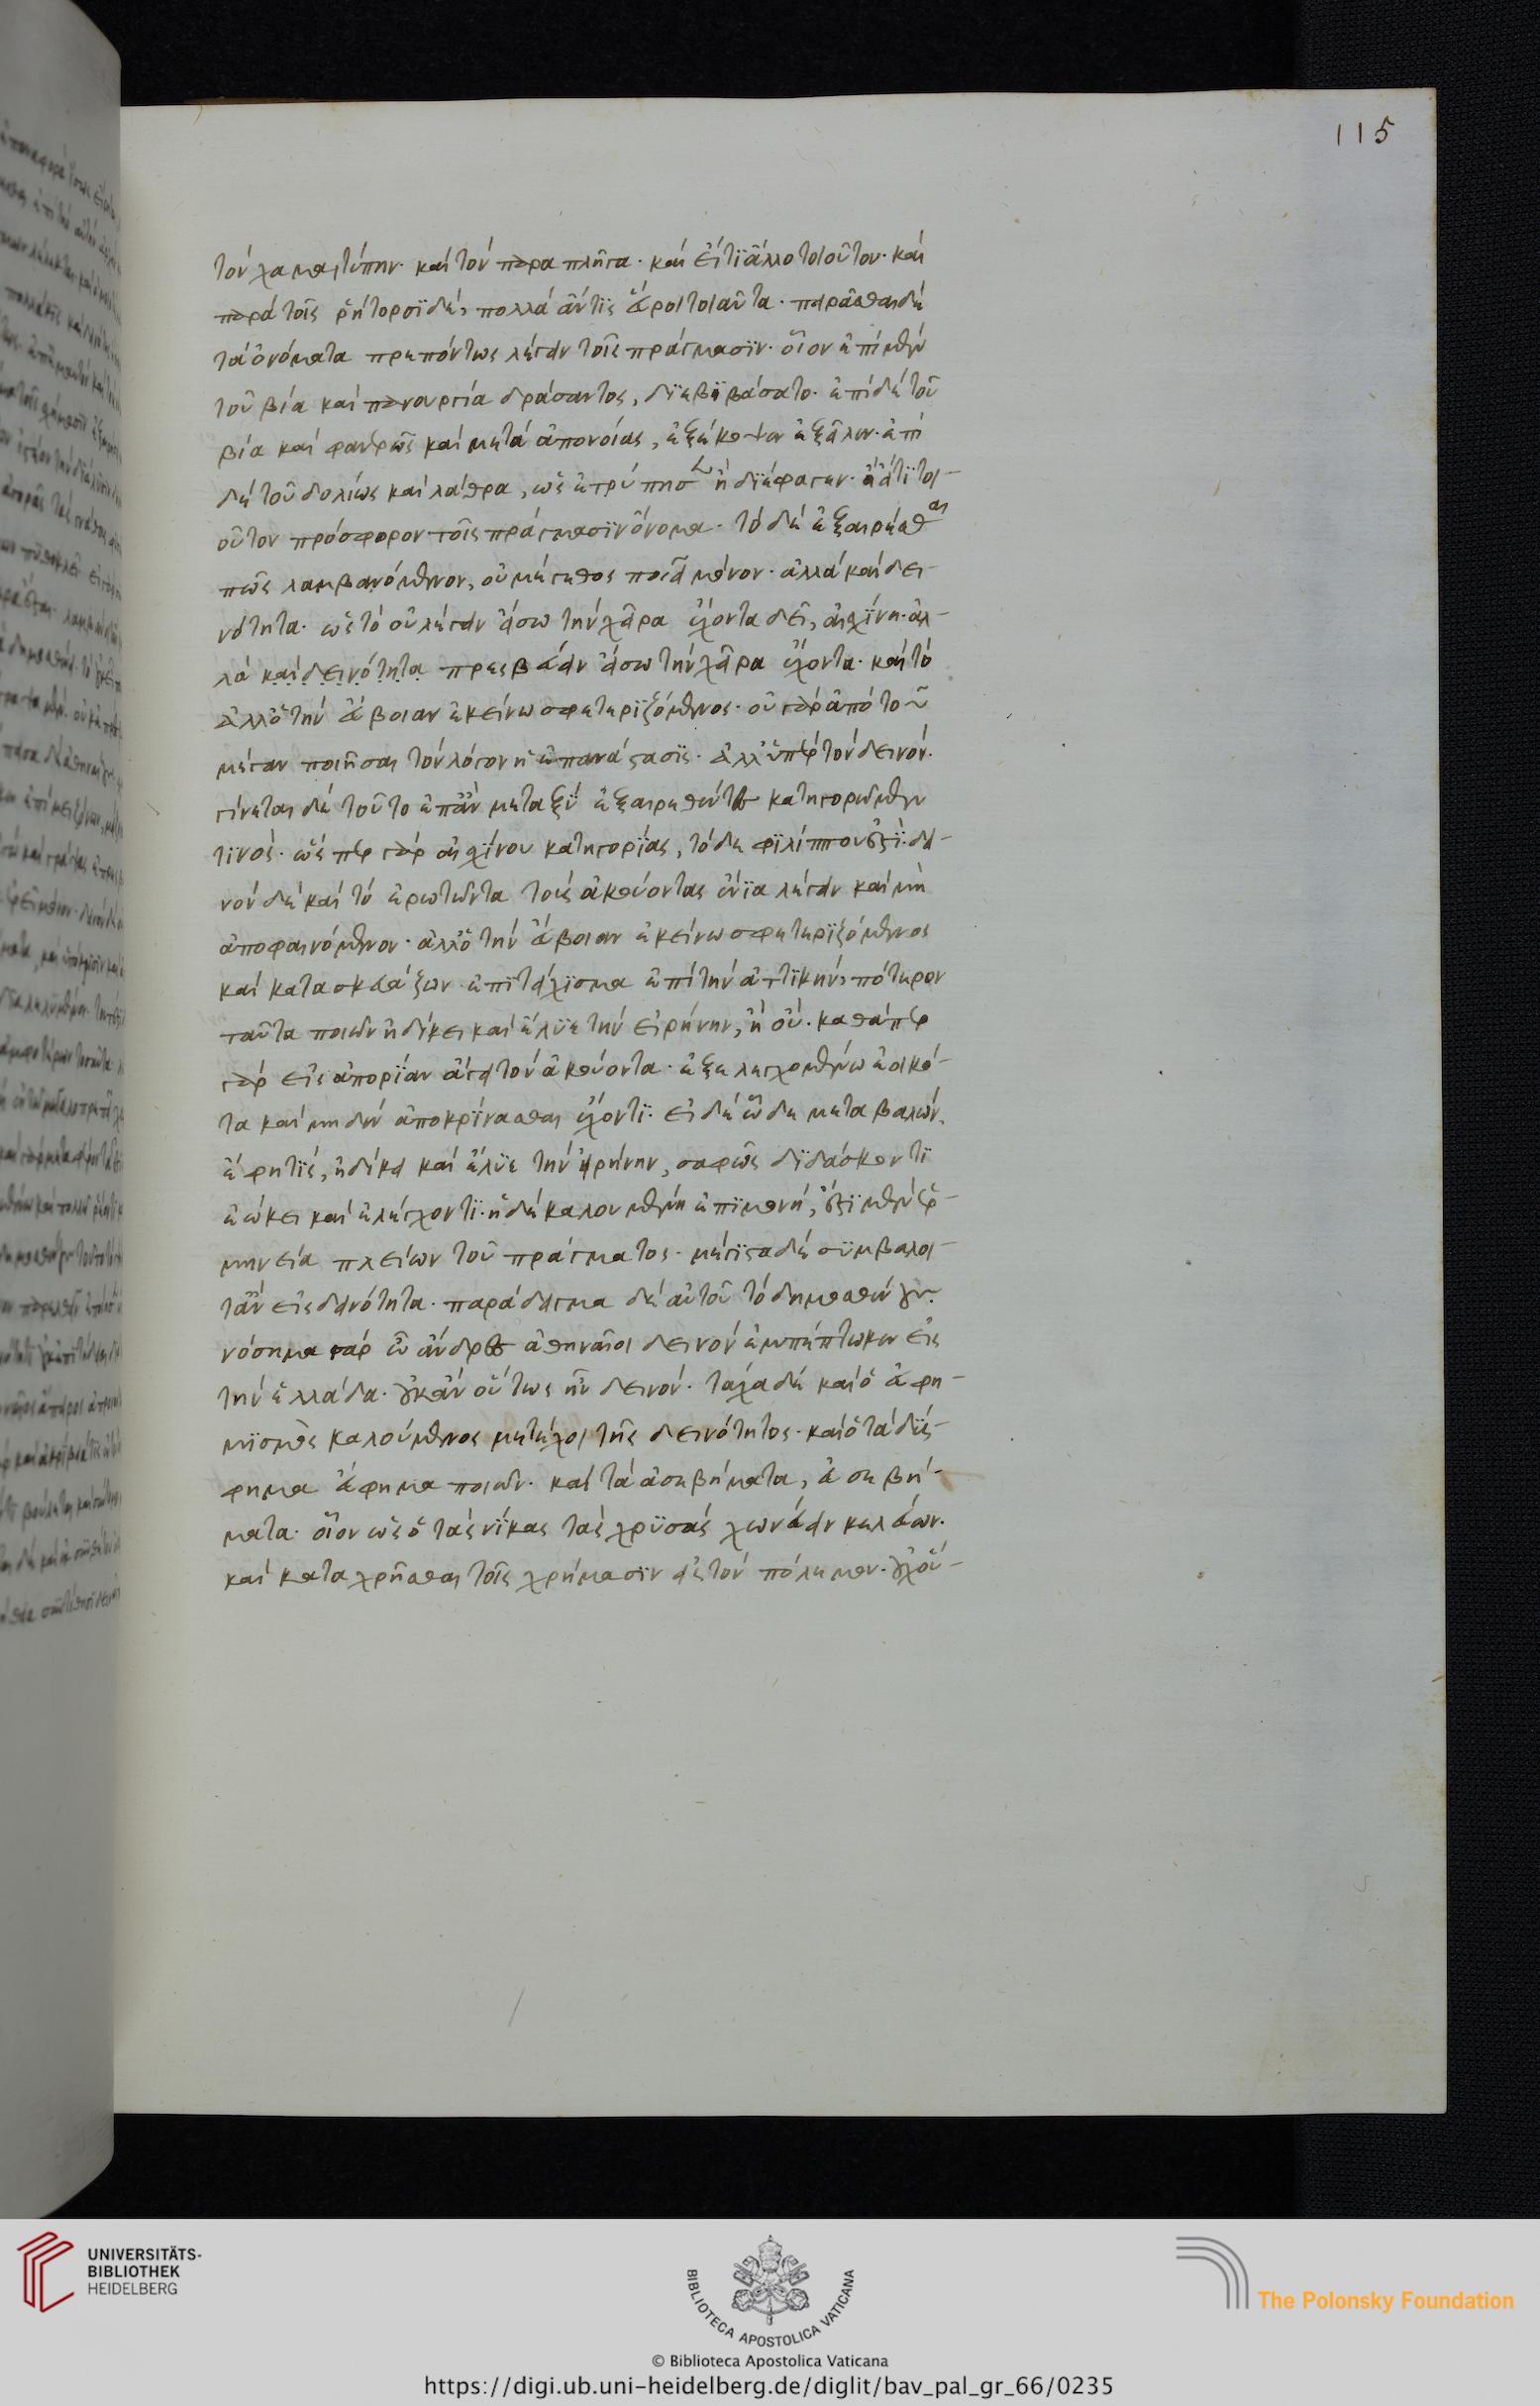 115
τὸν χαμαιτύπην· καὶ τὸν παραπλῆγα· καὶ εἴ τι ἄλλο τοιοῦτον· καὶ
παρὰ τοῖς ῥήτορσι δὲ, πολλὰ ἄν τις εὕροι τοιαῦτα· πειρᾶσθαι δὲ
τὰ ὀνόματα πρεπόντως λέγειν τοῖς πράγμασιν· οἷον ἐπὶ μὲν
τοῦ βία καὶ πανουργία δράσαντος, διεβιβάσατο· ἐπὶ δὲ τοῦ
βία καὶ φανερῶς καὶ μετὰ ἀπονοίας, ἐξέκοψεν ἐξεῖλεν· ἐπὶ
δὲ τοῦ δολίως καὶ λάθρα, ὡς ἐτρύπησεν ἢ διέφαγεν· ἢ εἴ τι τοι-
οῦτον πρόσφορον τοῖς πράγμασιν ὄνομα· τὸ δὲ ἐξαιρέσθαι
πῶς λαμβανόμενον, οὐ μέγεθος ποιεῖ μόνον· ἀλλὰ καὶ δει-
νότητα· ὡς τὸ οὐ λέγειν εἴσω τὴν χεῖρα ἔχοντα δεῖ, αἰσχίνη· ἀλ-
λὰ καὶ δεινότητα πρεσβεύειν εἴσω τὴν χεῖρα ἔχοντα· καὶ τὸ
ἀλλ' ὁ τὴν εὔβοιαν ἐκείνω σφετεριζόμενος· οὐ γὰρ ἀπὸ τοῦ
μέγαν ποιῆσαι τὸν λόγον ἡ ἐπανάστασις· ἀλλ' ὑπὲρ τὸν δεινόν·
γίνεται δὲ τοῦτο ἐπὰν μεταξὺ ἐξαιρεθέντες κατηγορῶμεν
τινὸς· ὥσπερ γὰρ αἰσχίνου κατηγορίας, τὸ δε φιλίππου ἐστὶ· δει-
νὸν δὲ καὶ τὸ ἐρωτῶντα τοὺς ἀκούοντας ἔνια λέγειν καὶ μὴ
ἀποφαινόμενον· ἀλλ' ὁ τὴν εὔβοιαν ἐκείνω σφετεριζόμενος
καὶ κατασκευάζων ἐπιτείχισμα ἐπὶ τὴν ἀττικὴν, πότερον
ταῦτα ποιῶν ἠδίκει καὶ ἔλυε τὴν εἰρήνην, ἢ οὔ· καθάπερ
γὰρ εἰς ἀπορίαν ἄγει τὸν ἀκούοντα· ἐξελεγχομένω ἐοικό-
τα καὶ μηδὲν ἀποκρίνασθαι ἔχοντι· εἰ δὲ ὧδε μεταβαλὼν
ἔφη τις, ἠδίκει καὶ ἔλυε τὴν εἰρήνην, σαφῶς διδάσκοντι
ἐώκει καὶ ἐλέγχοντι· ἡ δὲ καλουμένη ἐπιμονή, ἔστι μὲν ἑρ-
μηνεία πλείων τοῦ πράγματος· μέγιστα δὲ συμβάλοι-
τ' ἂν εἰς δεινότητα· παράδειγμα δὲ αὐτοῦ τὸ δημοσθένην·
νόσημα γὰρ ὦ ἄνδρες ἀθηναῖοι δεινὸν ἐμπέπτωκεν εἰς
τὴν ἑλλάδα· οὐκ ἂν οὕτως ἦν δεινόν· τάχα δὲ καὶ ὁ εὐφη-
μισμὸς καλούμενος μετέχοι τῆς δεινότητος· καὶ ὁ τὰ δύσ-
φημα εὔφημα ποιῶν· καὶ τὰ ἀσεβήματα, εὐσεβή-
ματα· οἷον ὡς ὁ τὰς νίκας τὰς χρυσᾶς χωνεύειν κελεύων·
καὶ καταχρῆσθαι τοῖς χρήμασιν εἰς τὸν πόλεμον· οὐχ οὕ-
UNIVERSITÄTS-
BIBLIOTHEK
HEIDELBERG
BIBLIOTECA APOSTOLICA VATICANA
© Biblioteca Apostolica Vaticana
The Polonsky Foundation
https://digi.ub.uni-heidelberg.de/diglit/bav_pal_gr_66/0235